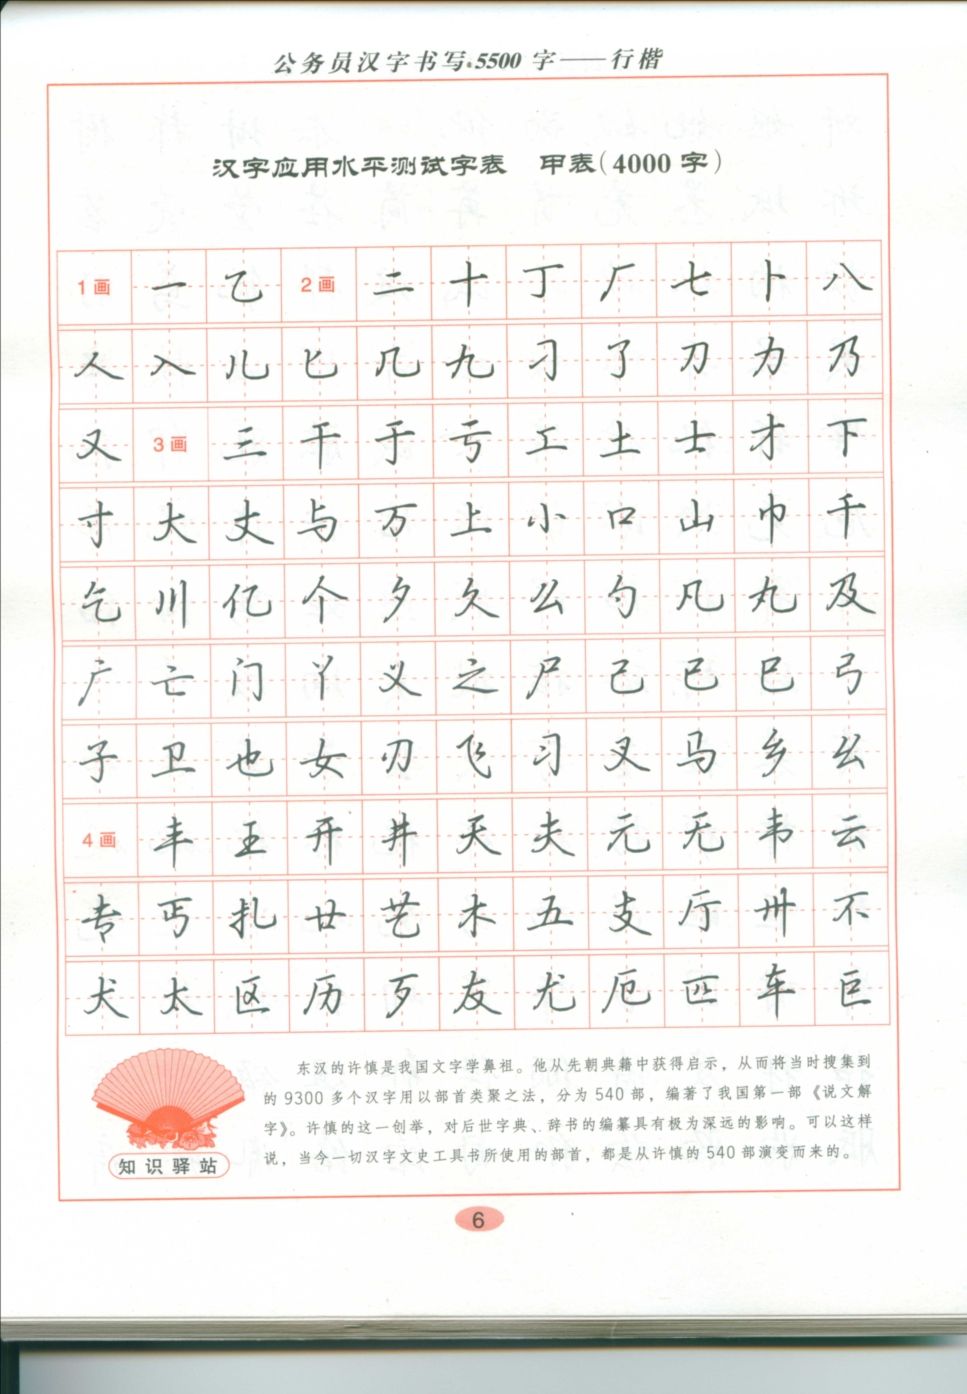 公务员汉字书写5500字——行楷
汉字应用水平测试字表 甲表(4000字)
1画 一 乙 2画 二 十 丁 厂 七 卜 八
人 入 儿 匕 几 九 刁 了 刀 力 乃
又 3画 三 干 于 亏 工 土 士 才 下
寸 大 丈 与 万 上 小 口 山 巾 千
乞 川 亿 个 夕 久 么 勺 凡 丸 及
广 亡 门 丫 义 之 尸 己 已 巳 弓
子 卫 也 女 刃 飞 习 叉 马 乡 幺
4画 丰 王 开 井 天 夫 元 无 韦 云
专 丐 扎 廿 艺 木 五 支 厅 卅 不
犬 太 区 历 歹 友 尤 厄 匹 车 巨
东汉的许慎是我国文字学鼻祖。他从先朝典籍中获得启示，从而将当时搜集到
的9300多个汉字用以部首类聚之法，分为540部，编著了我国第一部《说文解
字》。许慎的这一创举，对后世字典、辞书的编纂具有极为深远的影响。可以这样
说，当今一切汉字文史工具书所使用的部首，都是从许慎的540部演变而来的。
知识驿站
6